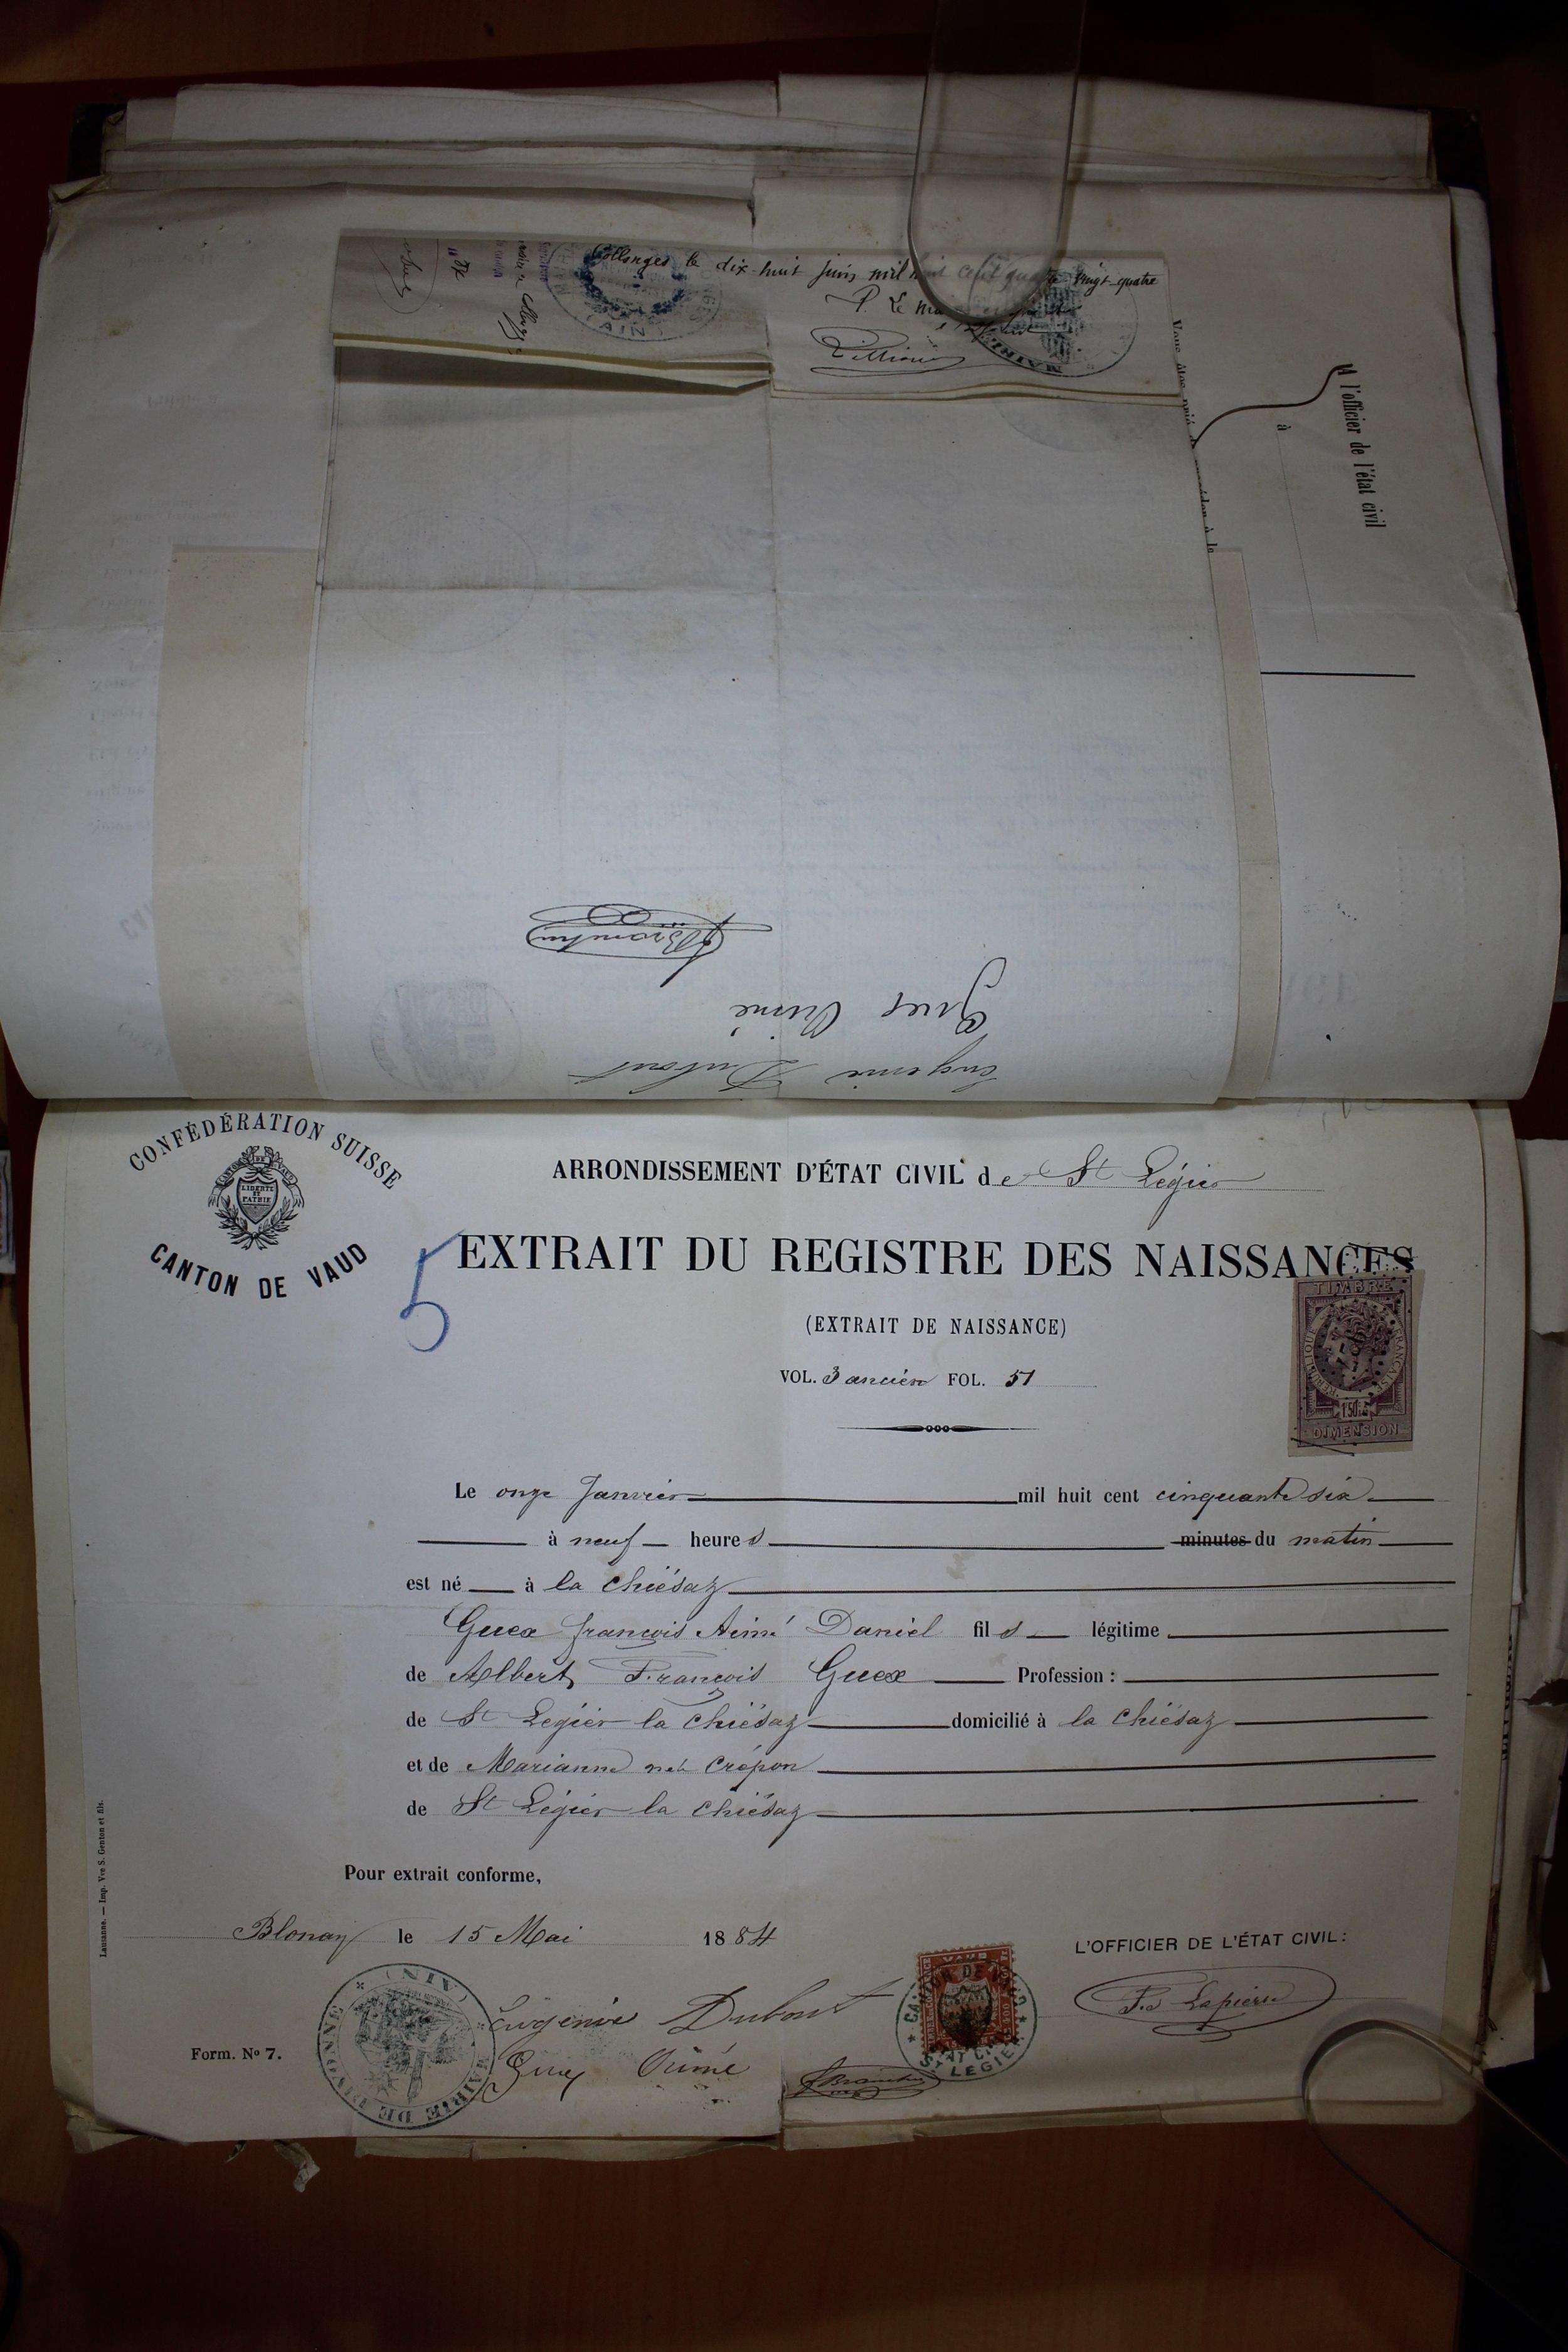 Collonges le dix-huit juin mil huit cent quatre vingt-quatre
P. Le
AIN
MAIRIE
A l'officier de l'état civil
à
Guex Aimé
Eugénie Dubout
CONFÉDÉRATION SUISSE
LIBERTÉ ET PATRIE
CANTON DE VAUD
5
ARRONDISSEMENT D'ÉTAT CIVIL de St Légier
EXTRAIT DU REGISTRE DES NAISSANCES
(EXTRAIT DE NAISSANCE)
VOL. 3 ancien FOL. 51
TIMBRE
RÉPUBLIQUE FRANÇAISE
1f50c
DIMENSION
Le onze Janvier mil huit cent cinquante six
à neuf heures minutes du matin
est né à la Chiésaz
Guex François Aimé Daniel fils légitime
de Albert François Guex Profession :
de St Légier la Chiésaz domicilié à la Chiésaz
et de Marianne née Crépon
de St Légier la Chiésaz
Pour extrait conforme,
Blonay le 15 Mai 1884
L'OFFICIER DE L'ÉTAT CIVIL :
MAIRIE DE DIVONNE (AIN)
Eugénie Dubout
CANTON DE VAUD
ST LEGIER
Form. No 7.
Guex Aimé
Lausanne. — Imp. Vve S. Genton et fils.